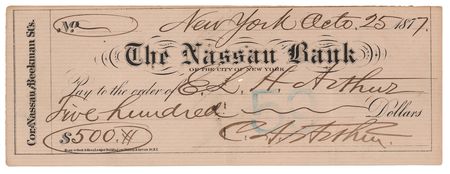 New York Octo. 25 1877.
No.
The Nassau Bank
OF THE CITY OF NEW YORK
Pay to the order of C. A. Arthur
Five hundred Dollars
$500.#
C. A. Arthur.
Cor. Nassau & Beekman Sts.